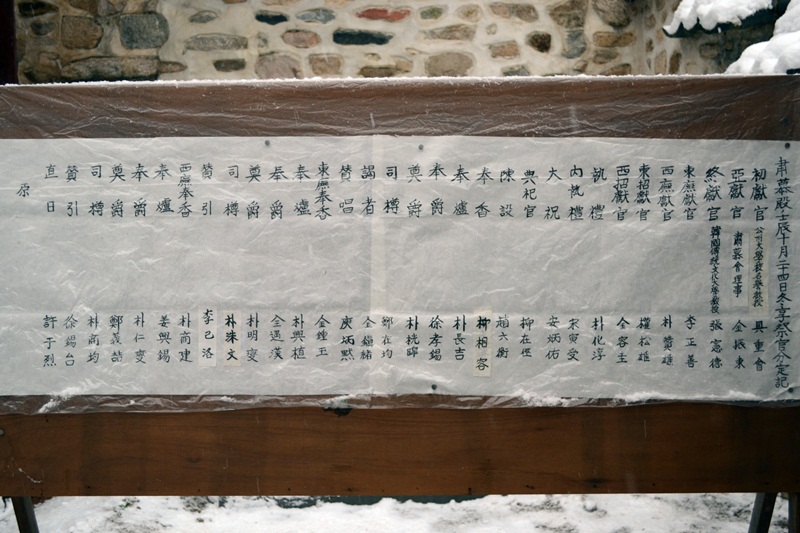 肅慕殿壬辰十月二十四日冬享祭官分定記
初獻官 公州大學校名譽敎授 具重會
亞獻官 肅慕會理事 金振東
終獻官 韓國傳統文化大學敎授 張憲德
東廡獻官 李正善
西廡獻官 朴雄
東招獻官 權松雄
西招獻官 全容
執禮 朴化淳
內執禮 宋寅受
大祝 安炳佑
典祀官 柳在
陳設 趙六衡
奉香 柳相容
奉爐 朴長吉
奉爵 徐孝錫
奠爵 朴桄暉
司樽 在均
謁者 金鎰緖
贊唱 庾炳熙
東廡奉香 金鍾王
奉爐 朴興植
奉爵 全遇漢
奠爵 朴明燮
司樽 朴珠文
贊引 李已洛
西廡奉香 朴商建
奉爐 姜興錫
奉爵 朴仁燮
奠爵 鄭義喆
司樽 朴商均
贊引 徐錫台
直日 許于烈
原